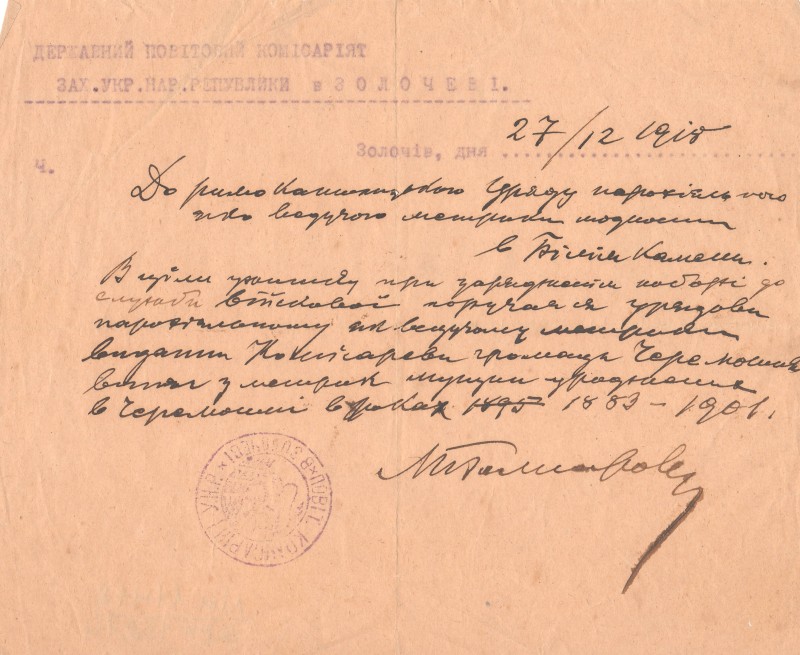 ДЕРЖАВНИЙ ПОВІТОВИЙ КОМІСАРІЯТ
ЗАХ.УКР.НАР.РЕПУБЛИКИ в ЗОЛОЧЕВІ.
27/12 1918
Ч. Золочів, дня
До римо католицького Уряду парохіяльного
яко ведучого метрики
в Білім Камени.
В ціли при до
служби військової поручаєся урядови
парохіяльному як ведучому метрики
видати Комісареви громади Черемошня
витяг з метрик мущин уроджених
в Черемошні в роках 1895 1883 – 1901.
ПОВІТ. КОМІСАРІЯТ У.Н.Р. В ЗОЛОЧЕВІ